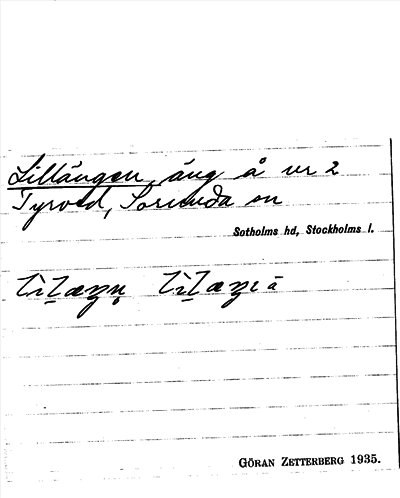 Lillängen, äng å nr 2
Tyrved, Sorunda sn
Sotholms hd, Stockholms l.
GÖRAN ZETTERBERG 1935.